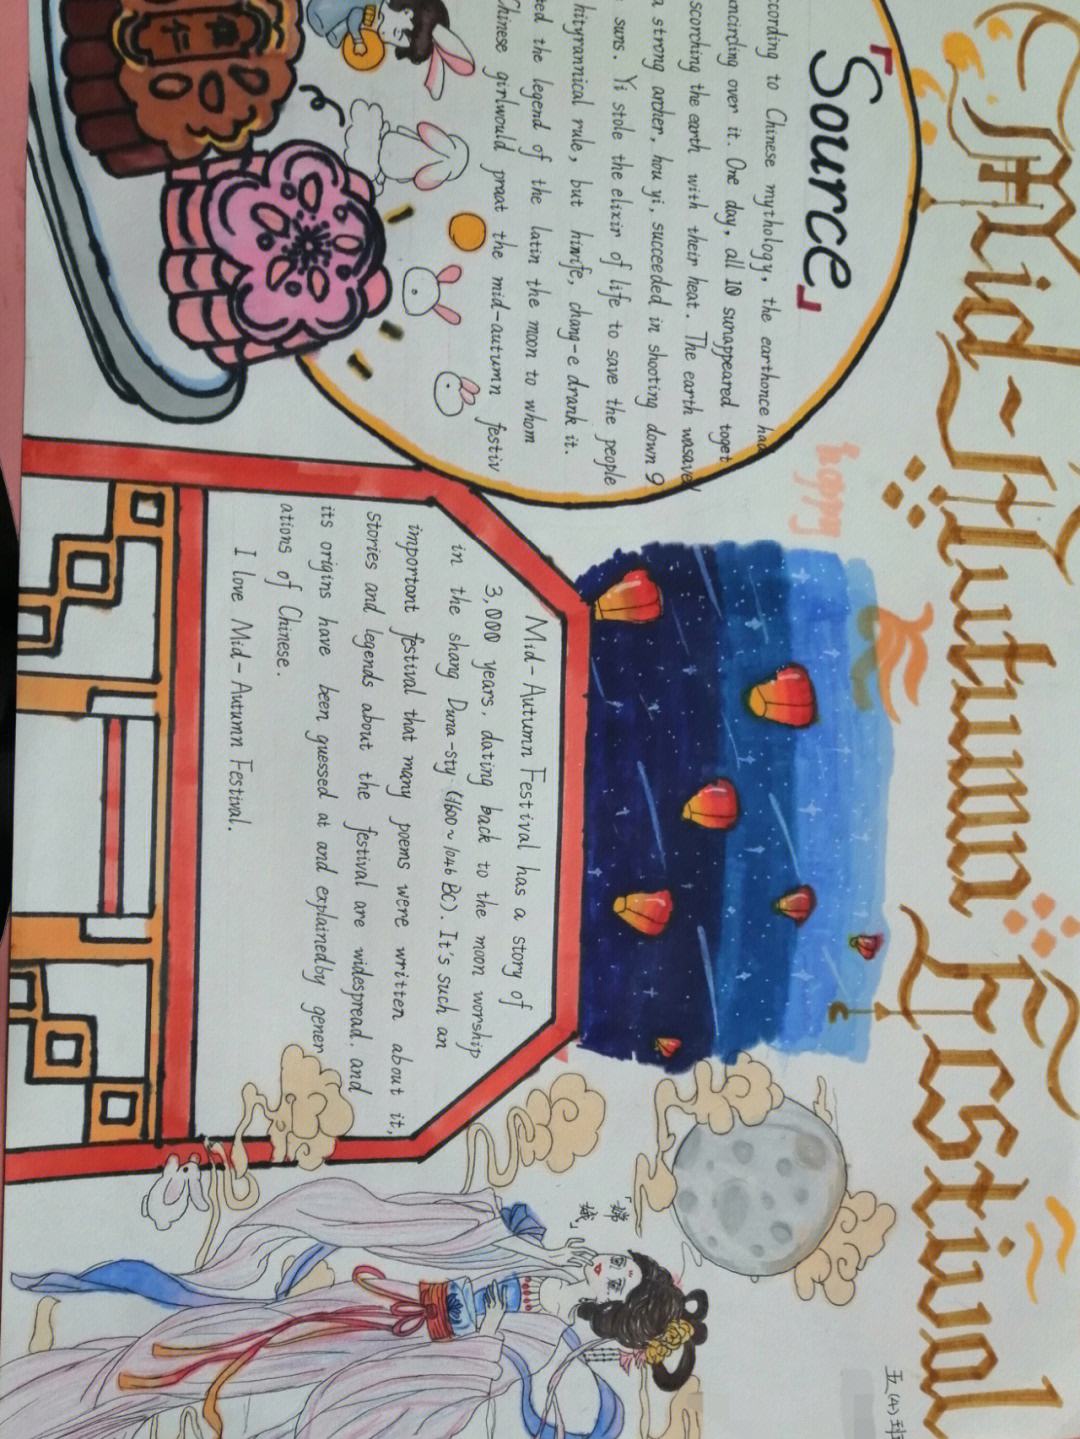 Mid-Autumn Festival
happy
五(4)班
「Source」
ccording to Chinese mythology, the earthonce had
ncircling over it. One day, all 10 sunappeared toget
scorching the earth with their heat. The earth wasave
a strong archer, hou yi, succeeded in shooting down 9
suns. Yi stole the elixir of life to save the people
hityrannical rule, but hiwife, chang-e drank it.
ed the legend of the latin the moon to whom
Chinese girlwould praat the mid-autumn festiv
Mid-Autumn Festival has a story of
3,000 years, dating back to the moon worship
in the shang Duna-sty (1600~1046 BC). It's such an
important festival that many poems were written about it,
stories and legends about the festival are widespread, and
its origins have been guessed at and explainedby gener
ations of Chinese.
I love Mid-Autumn Festival.
「嫦
娥」